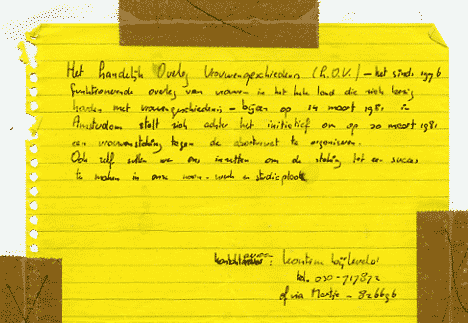 Het Landelijk Overleg Vrouwengeschiedenis (L.O.V.) – het sinds 1976
funktionerende overleg van vrouwen in het hele land die zich bezig
houden met vrouwengeschiedenis – bijeen op 14 maart 1981 in
Amsterdam stelt zich achter het initiatief om op 30 maart 1981
een vrouwenstaking tegen de abortuswet te organiseren.
Ook zelf zullen we ons inzetten om de staking tot een succes
te maken in onze woon- werk en studieplaats
: Leontine Bijleveld
tel. 020-717872
of via Martje – 926696